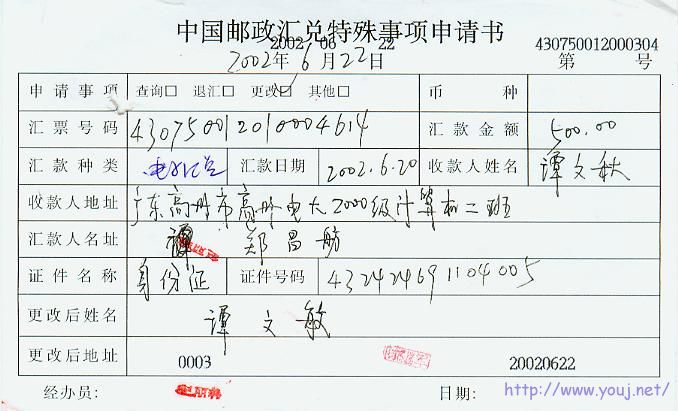 中国邮政汇兑特殊事项申请书
2002 06 22 430750012000304
2002年6月22日 第 号
申请事项 查询□ 退汇□ 更改□ 其他□ 币种
汇票号码 430750012010004614 汇款金额 500.00
汇款种类 电子汇兑 汇款日期 2002.6.20 收款人姓名 谭文秋
收款人地址 广东高州市高州电大2000级计算机二班
汇款人名址 郑昌舫
证件名称 身份证 证件号码 432424691104005
更改后姓名 谭文敏
更改后地址 0003 20020622
经办员: 日期: http://www.youj.net/